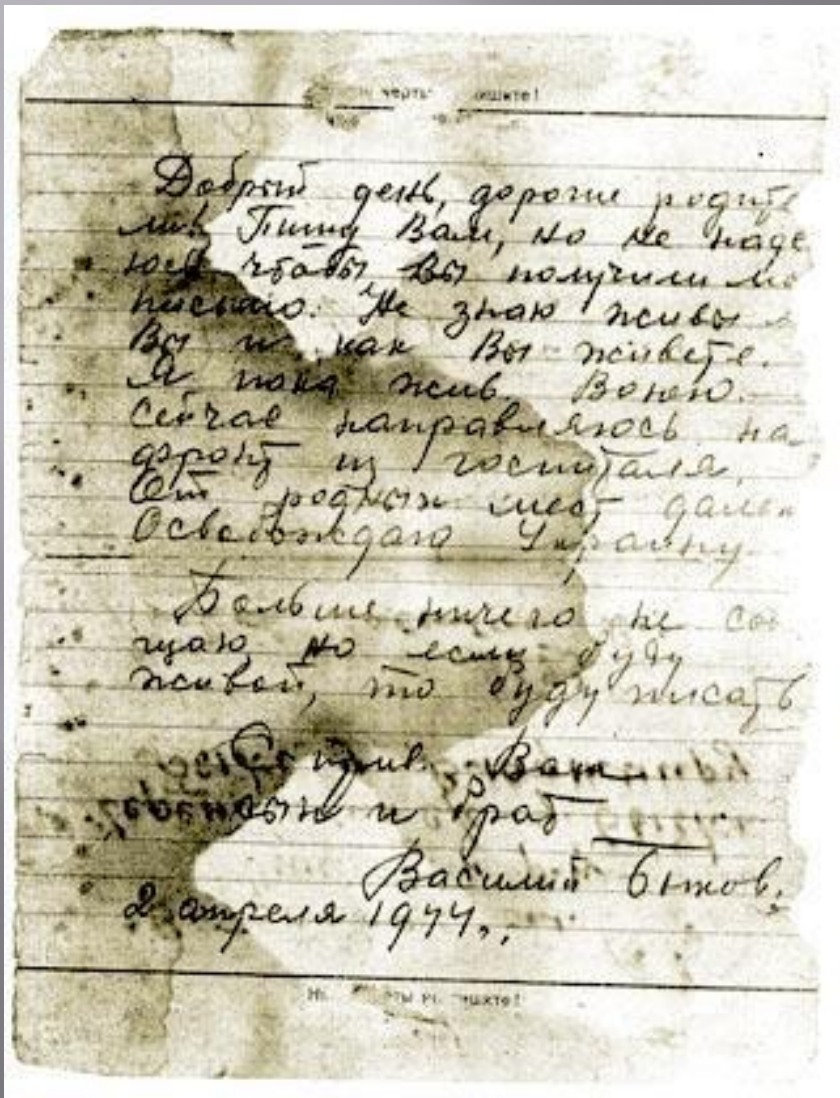 черты
Добрый день, дорогие родите
ли. Пишу Вам, но не наде
юсь чтобы Вы получили мо
письмо. Не знаю живы
Вы и как Вы живете.
Я пока жив. Воюю.
Сейчас направляюсь на
фронт из госпиталя.
От родных мест далек
Освобождаю Украину
Больше ничего не соо
щаю но если буду
живой, то буду писать
Ваш
сын и брат
Василий Быков.
2 апреля 1944.